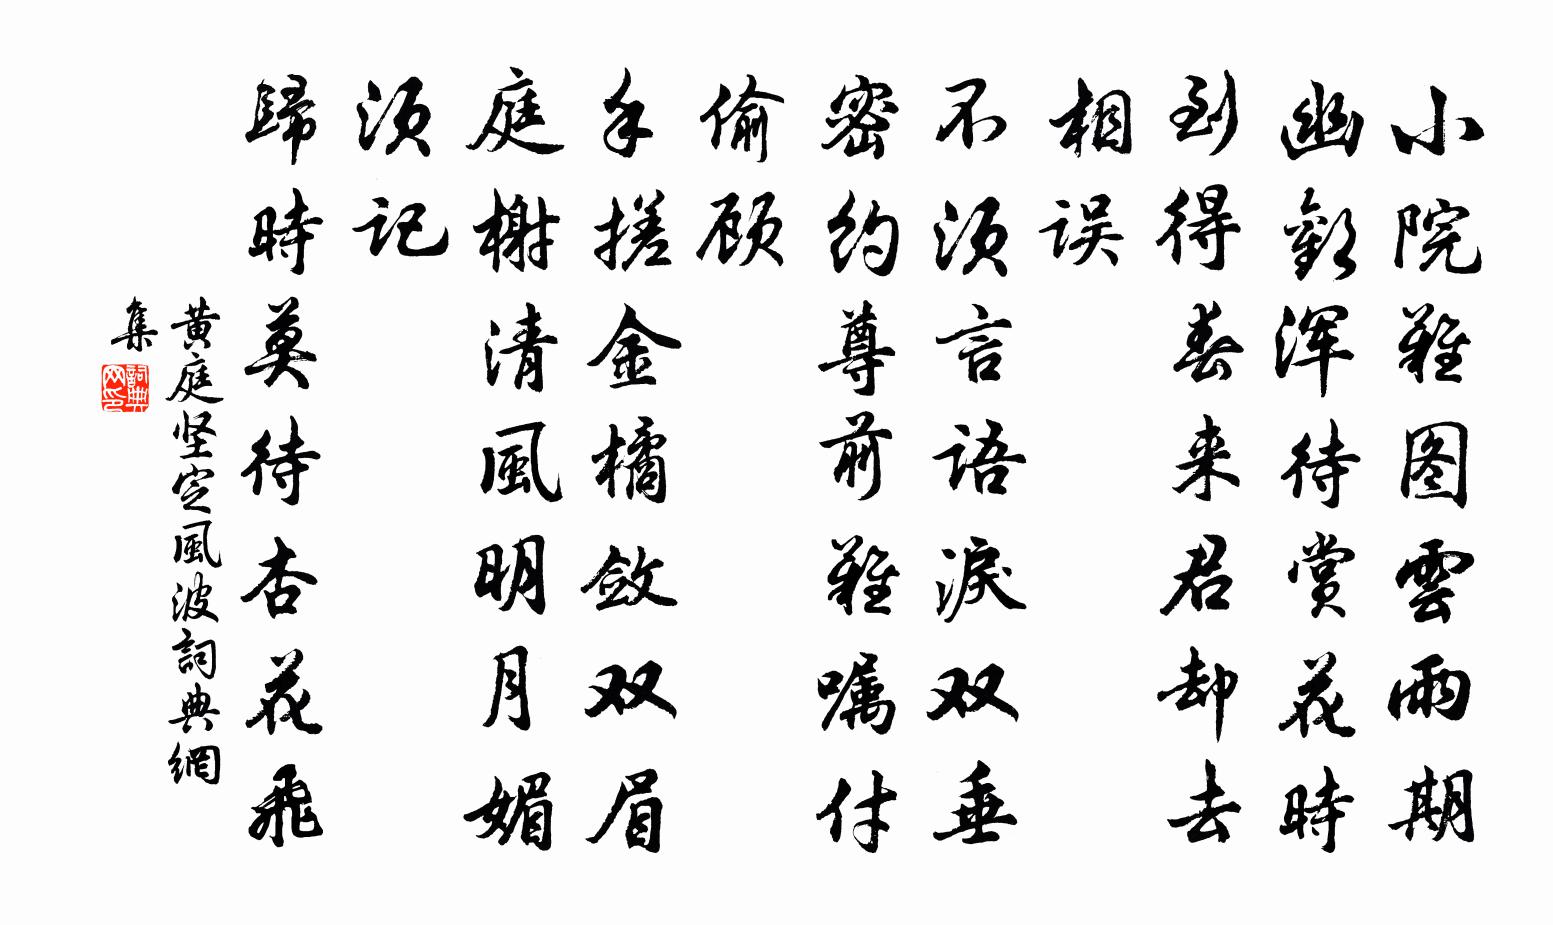 小院難图雲雨期
幽歡浑待赏花時
到得春来君却去
相误
不须言語淚双垂
密约尊前難嘱付
偷顾
手搓金橘敛双眉
庭榭清風明月媚
须记
歸時莫待杏花飛
黄庭坚定風波詞典網
集
詞典网印